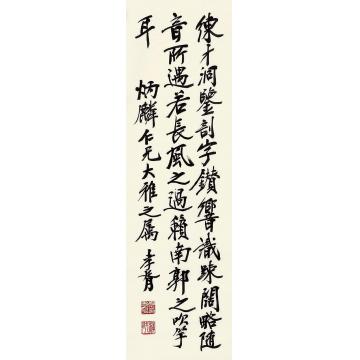 練才洞鑒剖字鑽響識踈闊略隨
音所遇若長風之過籟南郭之吹竽
耳 炳麟仁兄大雅之屬